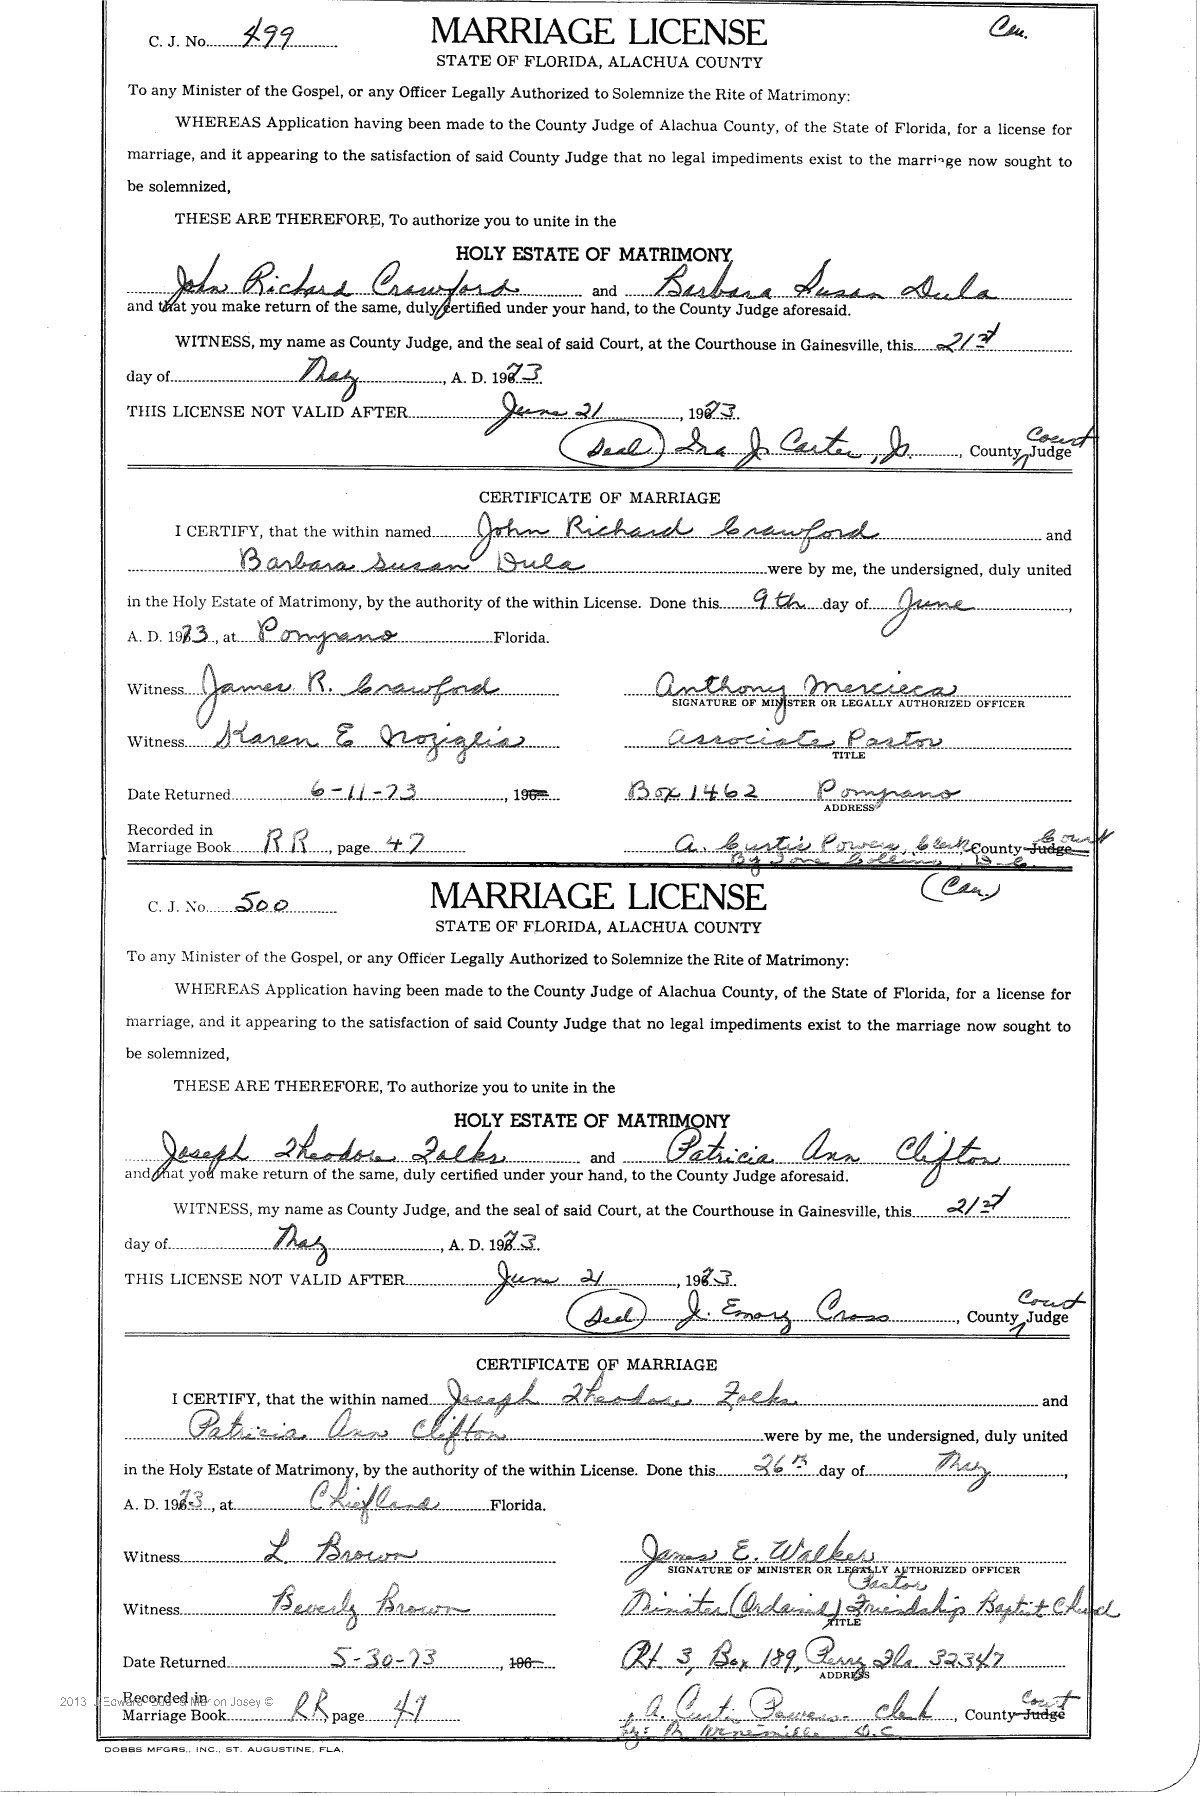 C. J. No. 499
Cau.
MARRIAGE LICENSE
STATE OF FLORIDA, ALACHUA COUNTY
To any Minister of the Gospel, or any Officer Legally Authorized to Solemnize the Rite of Matrimony:
WHEREAS Application having been made to the County Judge of Alachua County, of the State of Florida, for a license for
marriage, and it appearing to the satisfaction of said County Judge that no legal impediments exist to the marriage now sought to
be solemnized,
THESE ARE THEREFORE, To authorize you to unite in the
HOLY ESTATE OF MATRIMONY
John Richard Crawford and Barbara Susan Dula
and that you make return of the same, duly certified under your hand, to the County Judge aforesaid.
WITNESS, my name as County Judge, and the seal of said Court, at the Courthouse in Gainesville, this 21st
day of May, A. D. 1973.
THIS LICENSE NOT VALID AFTER June 21, 1973.
(Seal) Ira J. Carter, Jr., County Court Judge
CERTIFICATE OF MARRIAGE
I CERTIFY, that the within named John Richard Crawford and
Barbara Susan Dula were by me, the undersigned, duly united
in the Holy Estate of Matrimony, by the authority of the within License. Done this 9th day of June,
A. D. 1973, at Pompano Florida.
Witness James R. Crawford Anthony Mercieca
SIGNATURE OF MINISTER OR LEGALLY AUTHORIZED OFFICER
Witness Karen E Noziglia Associate Pastor
TITLE
Date Returned 6-11-73, 196 Box 1462 Pompano
ADDRESS
Recorded in
Marriage Book RR, page 47 A. Curtis Powers, Clerk County Judge Court
By Collins, D.C.
C. J. No. 500
(Cau.)
MARRIAGE LICENSE
STATE OF FLORIDA, ALACHUA COUNTY
To any Minister of the Gospel, or any Officer Legally Authorized to Solemnize the Rite of Matrimony:
WHEREAS Application having been made to the County Judge of Alachua County, of the State of Florida, for a license for
marriage, and it appearing to the satisfaction of said County Judge that no legal impediments exist to the marriage now sought to
be solemnized,
THESE ARE THEREFORE, To authorize you to unite in the
HOLY ESTATE OF MATRIMONY
Joseph Theodore Folks and Patricia Ann Clifton
and that you make return of the same, duly certified under your hand, to the County Judge aforesaid.
WITNESS, my name as County Judge, and the seal of said Court, at the Courthouse in Gainesville, this 21st
day of May, A. D. 1973.
THIS LICENSE NOT VALID AFTER June 21, 1973.
(Seal) J. Emory Cross, County Court Judge
CERTIFICATE OF MARRIAGE
I CERTIFY, that the within named Joseph Theodore Folks and
Patricia Ann Clifton were by me, the undersigned, duly united
in the Holy Estate of Matrimony, by the authority of the within License. Done this 26th day of May,
A. D. 1973, at Chiefland Florida.
Witness L Brown James E. Walker
SIGNATURE OF MINISTER OR LEGALLY AUTHORIZED OFFICER
Pastor
Witness Beverly Brown Minister (Ordained) Friendship Baptist Church
TITLE
Date Returned 5-30-73, 196 Rt 3, Box 189, Perry Fla. 32347
ADDRESS
Recorded in
Marriage Book RR page 47 A. Curtis Powers Clerk, County Judge Court
by: D.C.
DOBBS MFGRS., INC., ST. AUGUSTINE, FLA.